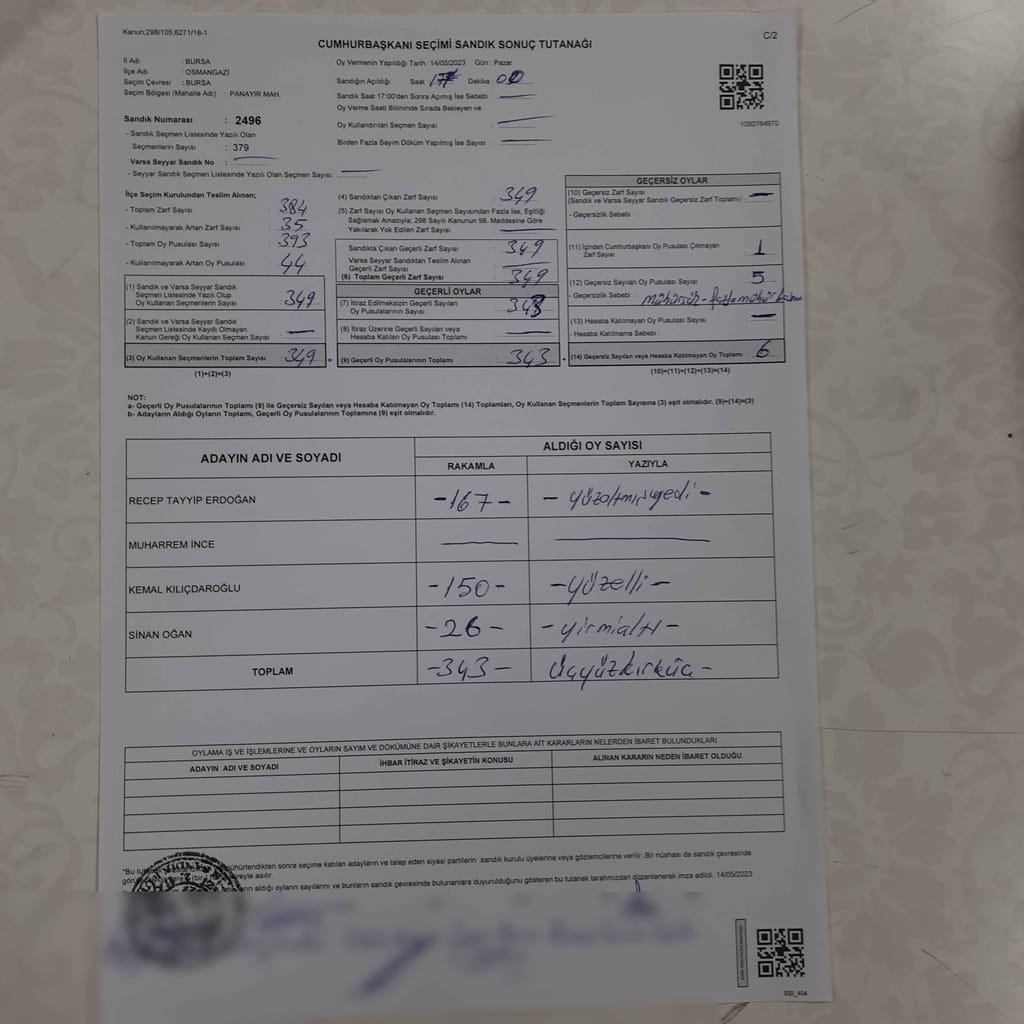 Kanun;298/105;6271/18-1
C/2
CUMHURBAŞKANI SEÇİMİ SANDIK SONUÇ TUTANAĞI
İl Adı : BURSA
İlçe Adı : OSMANGAZİ
Seçim Çevresi : BURSA
Seçim Bölgesi (Mahalle Adı) : PANAYIR MAH.
Sandık Numarası : 2496
- Sandık Seçmen Listesinde Yazılı Olan
Seçmenlerin Sayısı : 379
Varsa Seyyar Sandık No :
- Seyyar Sandık Seçmen Listesinde Yazılı Olan Seçmen Sayısı:
Oy Vermenin Yapıldığı Tarih :14/05/2023 Gün : Pazar
Sandığın Açıldığı Saat 17 Dakika 00
Sandık Saat 17:00'den Sonra Açımış İse Sebebi :
Oy Verme Saati Bitiminde Sırada Bekleyen ve
Oy Kullandırılan Seçmen Sayısı :
Birden Fazla Sayım Döküm Yapılmış İse Sayısı :
1093764970
İlçe Seçim Kurulundan Teslim Alınan;
- Toplam Zarf Sayısı : 384
- Kullanılmayarak Artan Zarf Sayısı : 35
- Toplam Oy Pusulası Sayısı : 393
- Kullanılmayarak Artan Oy Pusulası : 44
(1) Sandık ve Varsa Seyyar Sandık
Seçmen Listesinde Yazılı Olup
Oy Kullanan Seçmenlerin Sayısı : 349
(2) Sandık ve Varsa Seyyar Sandık
Seçmen Listesinde Kayıtlı Olmayan
Kanun Gereği Oy Kullanan Seçmen Sayısı :
(3) Oy Kullanan Seçmenlerin Toplam Sayısı : 349
(1)+(2)=(3)
(4) Sandıktan Çıkan Zarf Sayısı : 349
(5) Zarf Sayısı Oy Kullanan Seçmen Sayısından Fazla İse, Eşitliği
Sağlamak Amacıyla; 298 Sayılı Kanunun 98. Maddesine Göre
Yakılarak Yok Edilen Zarf Sayısı :
Sandıkta Çıkan Geçerli Zarf Sayısı : 349
Varsa Seyyar Sandıktan Teslim Alınan
Geçerli Zarf Sayısı :
(6) Toplam Geçerli Zarf Sayısı : 349
GEÇERLİ OYLAR
(7) İtiraz Edilmeksizin Geçerli Sayılan
Oy Pusulasının Sayısı : 343
(8) İtiraz Üzerine Geçerli Sayılan veya
Hesaba Katılan Oy Pusulası Toplamı :
= (9) Geçerli Oy Pusulalarının Toplamı : 343 +
GEÇERSİZ OYLAR
(10) Geçersiz Zarf Sayısı
(Sandık ve Varsa Seyyar Sandık Geçersiz Zarf Toplamı) :
- Geçersizlik Sebebi :
(11) İçinden Cumhurbaşkanı Oy Pusulası Çıkmayan
Zarf Sayısı : 1
(12) Geçersiz Oy Pusulası Sayısı : 5
- Geçersizlik Sebebi : mühürsüz-fazlamühür
(13) Hesaba Katılmayan Oy Pusulası Sayısı :
- Hesaba Katılmama Sebebi :
(14) Geçersiz Sayılan veya Hesaba Katılmayan Oy Toplamı : 6
(10)+(11)+(12)+(13)=(14)
NOT:
a- Geçerli Oy Pusulalarının Toplamı (9) ile Geçersiz Sayılan veya Hesaba Katılmayan Oy Toplamı (14) Toplamları, Oy Kullanan Seçmenlerin Toplam Sayısına (3) eşit olmalıdır. (9)+(14)=(3)
b- Adayların Aldığı Oyların Toplamı, Geçerli Oy Pusulalarının Toplamına (9) eşit olmalıdır.
ADAYIN ADI VE SOYADI
ALDIĞI OY SAYISI
RAKAMLA YAZIYLA
RECEP TAYYİP ERDOĞAN -167- - yüzaltmışyedi -
MUHARREM İNCE
KEMAL KILIÇDAROĞLU -150- -yüzelli-
SİNAN OĞAN -26- -yirmialtı-
TOPLAM -343- Üçyüzkırküç-
OYLAMA İŞ VE İŞLEMLERİNE VE OYLARIN SAYIM VE DÖKÜMÜNE DAİR ŞİKAYETLERLE BUNLARA AİT KARARLARIN NELERDEN İBARET BULUNDUKLARI
ADAYIN ADI VE SOYADI İHBAR İTİRAZ VE ŞİKAYETİN KONUSU ALINAN KARARIN NEDEN İBARET OLDUĞU
*Bu mühürlendikten sonra seçime katılan adayların ve talep eden siyasi partilerin sandık kurulu üyelerine veya gözlemcilerine verilir. Bir nüshası da sandık çevresinde
(bir) süreyle asılır.
aldığı oyların sayılarını ve bunların sandık çevresinde bulunanlara duyurulduğunu gösteren bu tutanak tarafımızdan düzenlenerek imza edildi. 14/05/2023
SSI_404